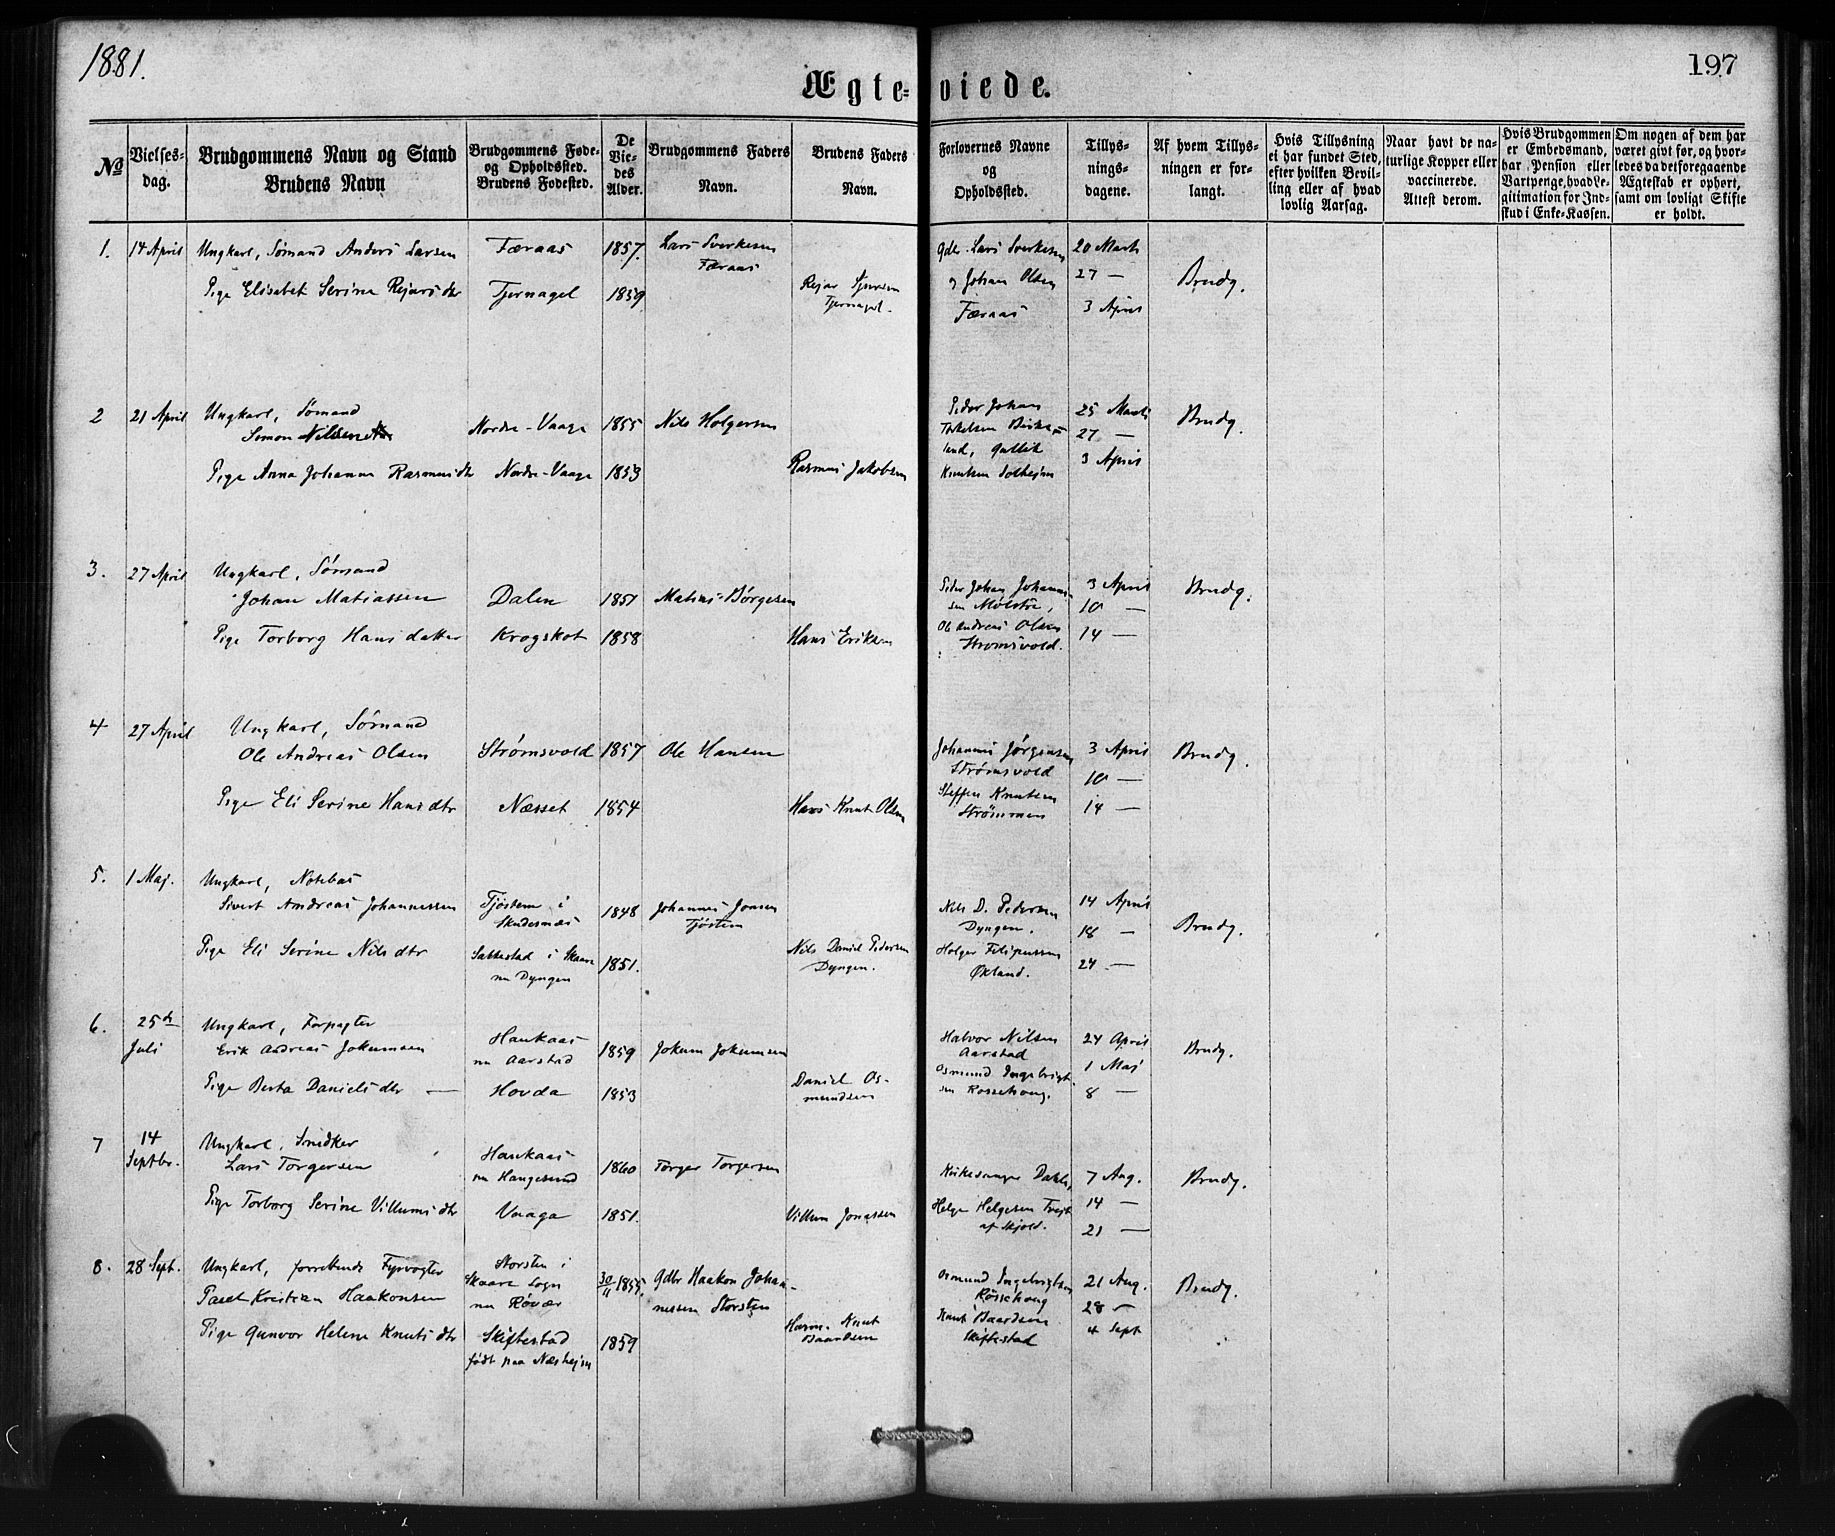 1881.
197
Ægte-viede.
No
Vielses-
dag.
Brudgommens Navn og Stand
Brudens Navn
Brudgommens Føde-
og Opholdssted.
Brudens Fødested.
De
Vie-
des
Alder.
Brudgommens Faders
Navn.
Brudens Faders
Navn.
Forlovernes Navne
og
Opholdssted.
Tillys-
nings-
dagene.
Af hvem Tillys-
ningen er for-
langt.
Hvis Tillysning
ei har fundet Sted,
efter hvilken Bevil-
ling eller af hvad
lovlig Aarsag.
Naar havt de na-
turlige Kopper eller
vaccinerede.
Attest derom.
Hvis Brudgommen
er Embedsmand,
har Pension eller
Vartpenge, hvad Le-
gitimation for Ind-
skud i Enke-Kassen.
Om nogen af dem har
været givt før, og hvor-
ledes da det foregaaende
Ægteskab er ophørt,
samt om lovligt Skifte
er holdt.
1. 14 April Ungkarl, Sømand Anders Larsen Færaas 1857. Lars Sverkesen Gdbr. Lars Sverkesen 20 Marts
Færaas
Pige Elisabet Serine Rejars dtr Tjernagel 1859 Rejar og Johan Olsen 27 — Brudg.
Tjernagel.
Færaas 3 April
2 21 April Ungkarl, Sømand Peder Johan 25 Marts Brudg.
Simon Nilsen Nordre-Vaage 1855 Nils Holgersen Torkelsen Birke- 27 —
land, Gullik 3 April
Pige Anna Johanna Rasmusdtr Nordre-Vaage 1853 Rasmus Jakobsen Knutsen Solhejm
3. 27 April Ungkarl, Sømand
Johan Matiassen Dalen 1851 Matias Børgesen Peder Johan Johannes- 3 April Brudg.
sen Mølstre, 10 —
Pige Torborg Hansdatter Krogskot 1858 Hans Eriksen Ole Andreas Olsen 14 —
Strømsvold.
4 27 April Ungkarl, Sømand
Ole Andreas Olsen Strømsvold 1857 Ole Hansen Johannes Jørgensen 3 April Brudg.
Strømsvold 10 —
Pige Eli Serine Hansdtr Næsset 1854 Hans Knut Olsen Steffen Knutsen 14 —
Strømmen
5. 1 Maj. Ungkarl, Notebas
Sivert Andreas Johannessen Tjøstem i 1848 Johannes Jonsen Nils D. Pedersen 14 April
Skudesnæs Tjøstem Dyngen. 18 — Brudg.
Pige Eli Serine Nilsdtr Sakkestad i Skaare 1851. Nils Daniel Pedersen Holger Filipussen 24 —
nu Dyngen Dyngen. Økland.
6. 25de Ungkarl, Forpagter
Juli Erik Andreas Jokumsen Haukaas 1859 Jokum Jokumsen Halvor Nilsen 24 April Brudg.
nu Aarstad Aarstad 1 Maj
Pige Berta Danielsdtr — Hovda 1853 Daniel Os- Osmund Ingebrigt- 8 —
mundsen sen Rossehoug.
7 14 Ungkarl, Snedker
Septbr. Lars Torgersen Haukaas 1860 Torger Torgersen Kirkesanger Dahle, 7 Aug. Brudg.
nu Haugesund
Pige Torborg Serine Villumsdtr Vaaga 1851. Villum Jonassen Helge Helgesen 14 —
af Skjold. 21 —
8. 28 Sept. Ungkarl, Fyrvogter Storsten i 30/11 1855. Gdbr Haakon Johan- Osmund Ingebrigtsen 21 Aug. Brudg.
Kristian Haakonsen Skaare Sogn nessen Storsten Rossehoug 28 —
nu Røvær
Pige Gunvor Helene Knutsdtr Skiftestad 1859 Knut Knut Baardsen 4 Sept
født paa Næshejm Baardsen Skiftestad